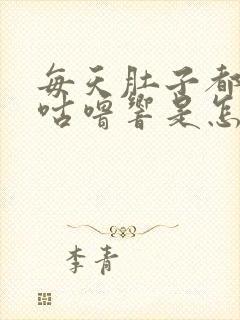 每天肚子都
咕噜响是怎
李青